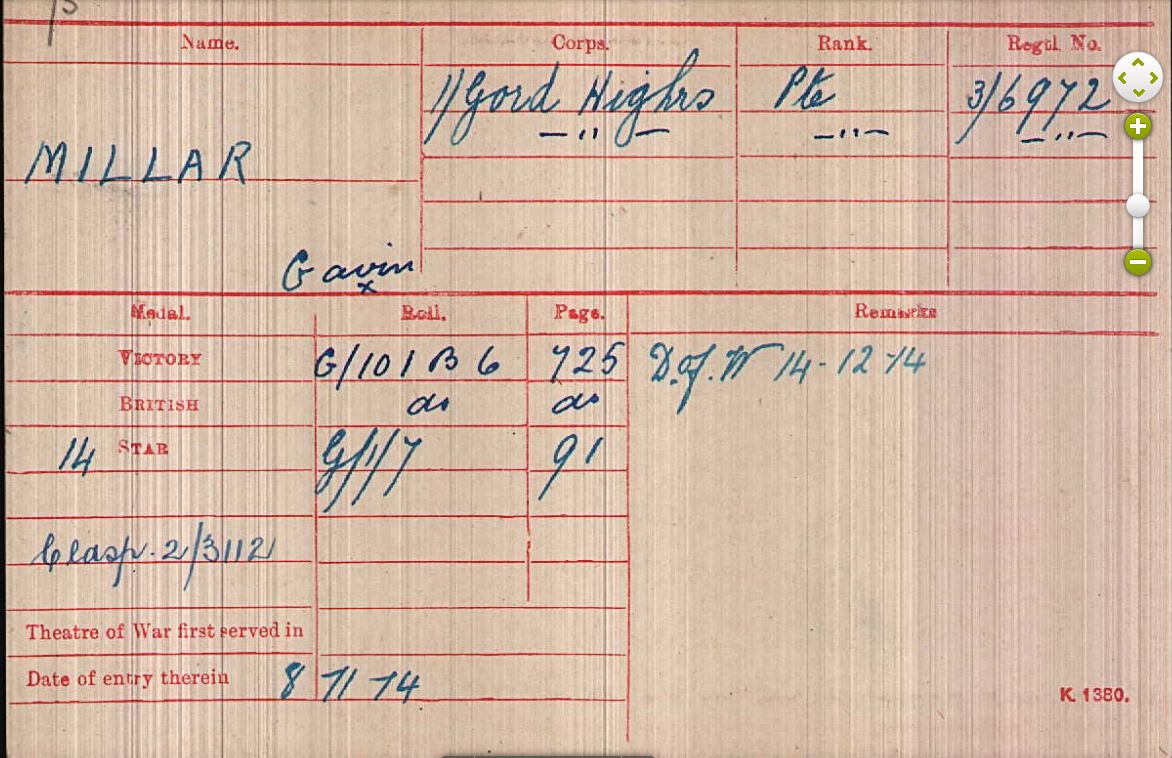 Name. Corps. Rank. Regtl. No.
MILLAR
Gavin
x
1/Gord Highrs Pte 3/6972
—"— —"— —"—
Medal. Roll. Page. Remarks
VICTORY G/101 B 6 725 D.of.W 14-12-14
BRITISH do do
14 STAR G/1/7 91
Clasp. 2/3112
Theatre of War first served in
Date of entry therein 8 11 14
K. 1380.